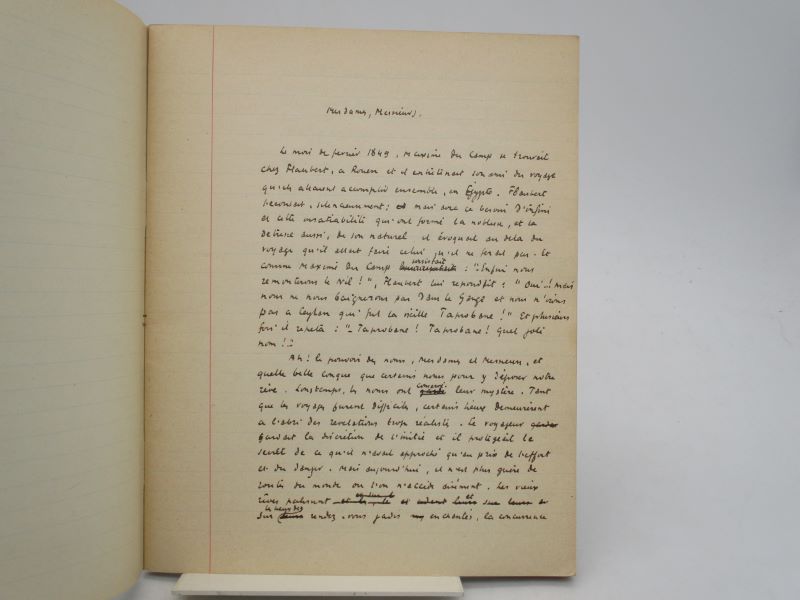 Mesdames, Messieurs.
Le mois de février 1849, Maxime Du Camp se trouvait
chez Flaubert, à Rouen et il entretenait son ami du voyage
qu'ils allaient accomplir ensemble, en Egypte. Flaubert
l'écoutait, silencieusement; mais avec ce besoin d'infini
et cette insatiabilité qui ont formé la noblesse, et la
détresse aussi, de son naturel il évoquait au delà du
voyage qu'il allait faire celui qu'il ne ferait pas. Et
comme Maxime Du Camp insistait : "- Enfin nous
remonterons le Nil !", Flaubert lui répondait : "Oui..! Mais
nous ne nous baignerons pas dans le Gange et nous n'irons
pas à Ceylan qui fut la vieille Taprobane !" Et plusieurs
fois il répéta : "- Taprobane ! Taprobane ! Quel joli
nom !"
Ah ! le pouvoir des noms, Mesdames et Messieurs, et
quelle belle conque que certains noms pour y déposer notre
rêve. Longtemps, les noms ont conservé leur mystère. Tant
que les voyages furent difficiles, certains lieux demeurèrent
à l'abri des révélations trop réalistes. Le voyageur
gardait la discrétion de l'initié et il protégeait le
secret de ce qu'il n'avait approché qu'au prix de l'effort
et du danger. Mais aujourd'hui, il n'est plus guère de
routes du monde où l'on n'accède aisément. Les vieux
rêves
sur les lieux des rendez-vous jadis enchantés, la concurrence